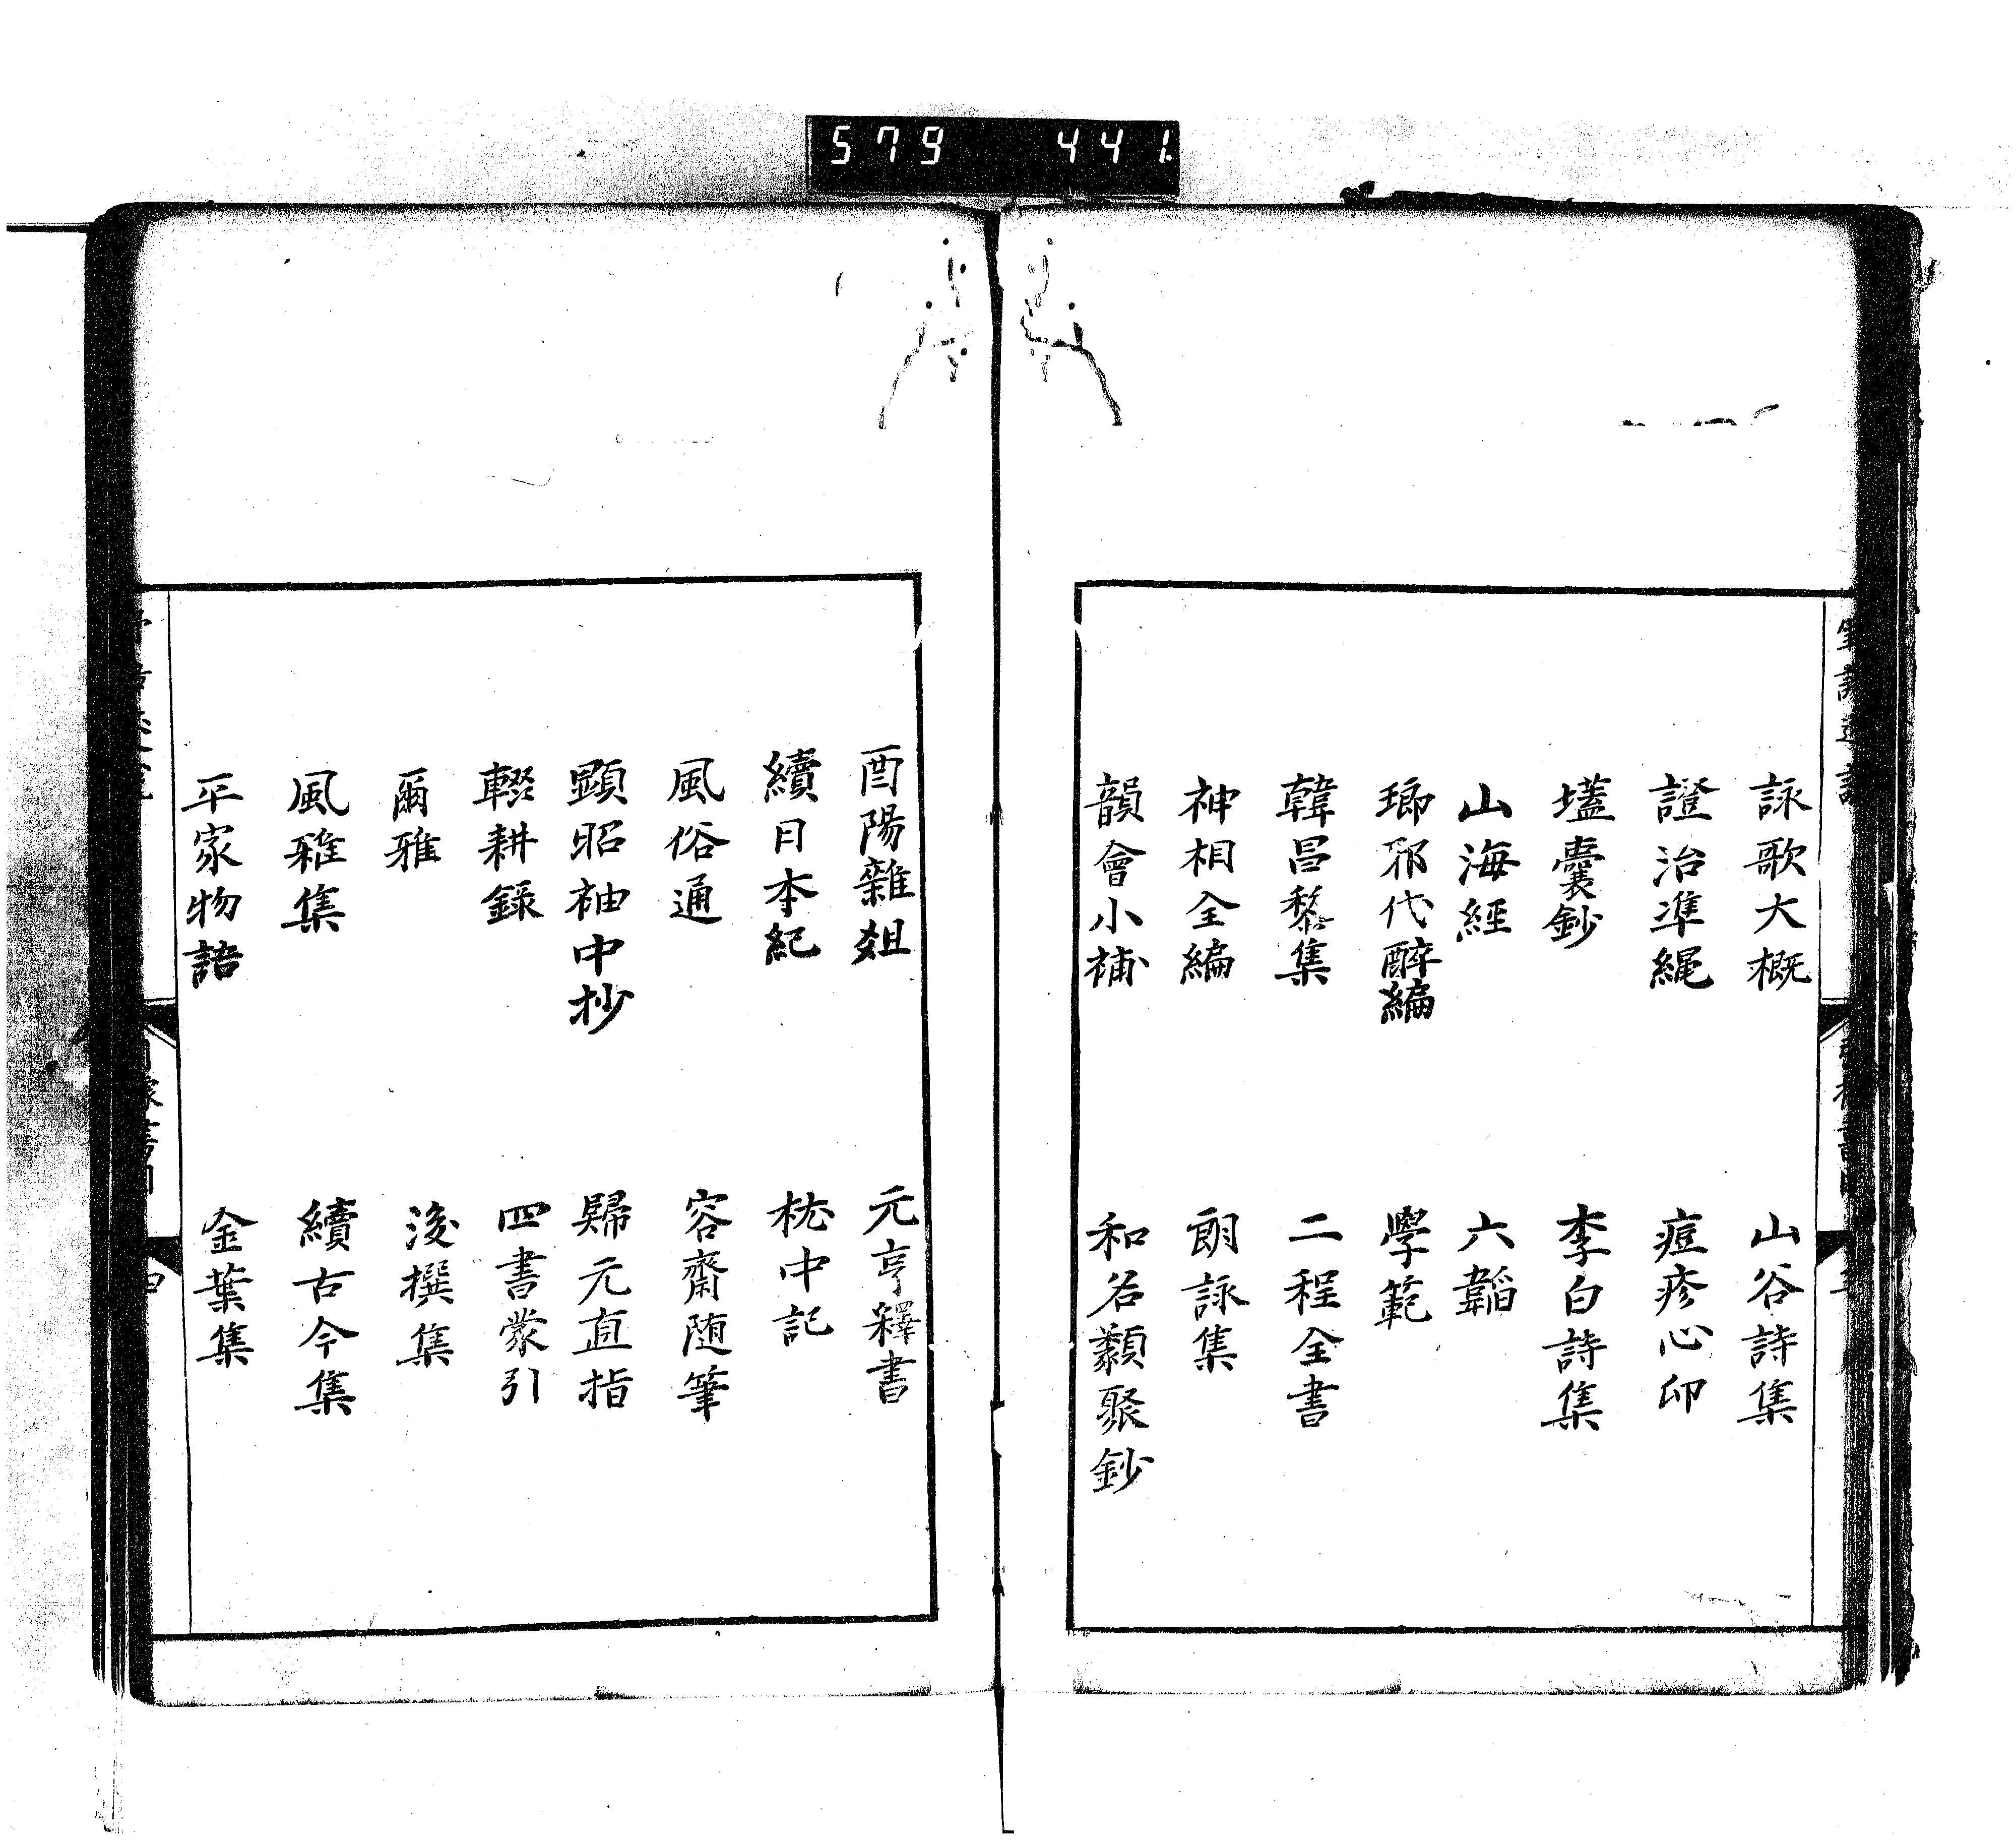 579 441.
詠歌大概
山谷詩集
證治準繩
痘疹心印
壒囊鈔
李白詩集
山海經
六韜
瑯邪代醉編
學範
韓昌黎集
二程全書
神相全編
朗詠集
韻會小補
和名類聚鈔
酉陽雜俎
元亨釋書
續日本紀
枕中記
風俗通
容齋随筆
顕昭袖中抄
歸元直指
輟耕録
四書蒙引
爾雅
後撰集
風雅集
續古今集
平家物語
金葉集